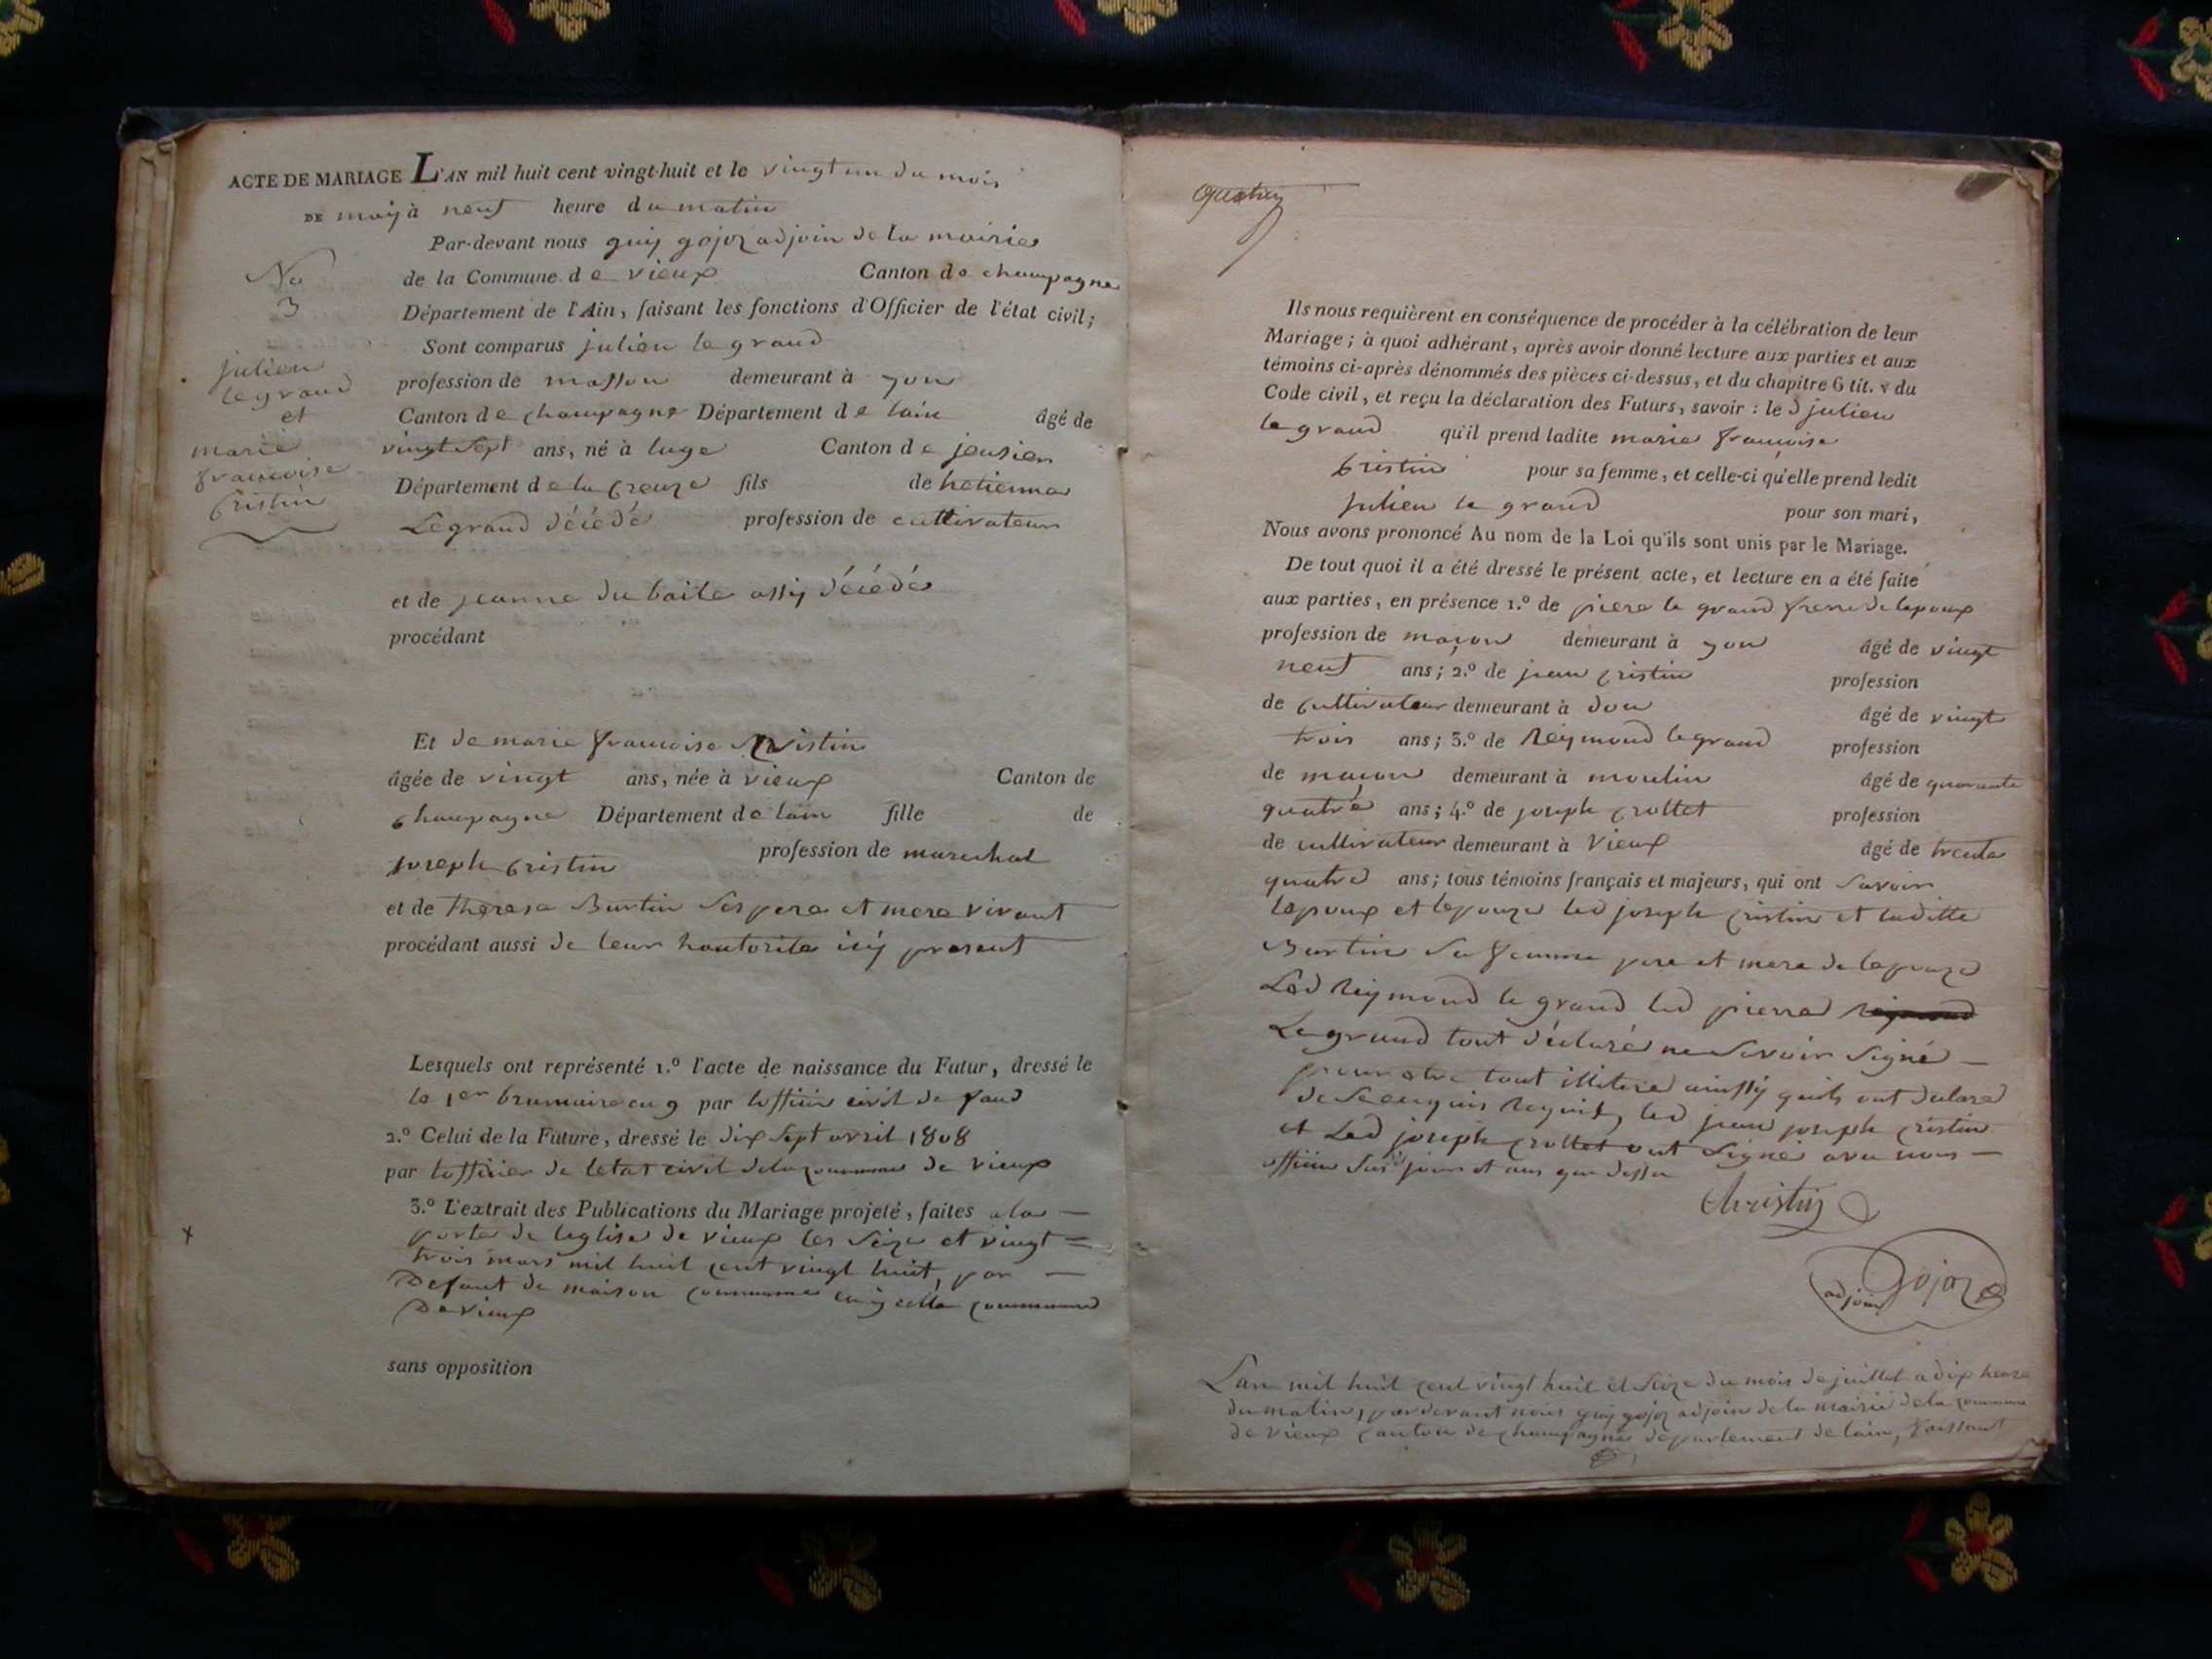 ACTE DE MARIAGE L'AN mil huit cent vingt-huit et le vingt un du mois
DE may à neuf heure du matin
Par-devant nous guy gojoz adjoin de la mairie
No de la Commune de vieux Canton de champagne
3 Département de l'Ain, faisant les fonctions d'Officier de l'état civil;
Sont comparus julien le grand
julien
le grand
et
marie
francoise
Cristin
profession de masson demeurant à yon
Canton de champagne Département de lain âgé de
vingt sept ans, né à Canton de
Département de la Creuze fils de hetienne
Legrand décédé profession de cultivateur
et de jeanne du baile assy décédés
procédant
Et de marie francoise Cristin
âgée de vingt ans, née à vieux Canton de
Champagne Département de lain fille de
joseph Cristin profession de marechal
et de therese Burtin ses pere et mere vivant
procédant aussi de leur hautorite icy present
Lesquels ont représenté 1.º l'acte de naissance du Futur, dressé le
le 1er brumaire en 9 par lofficie civil de
2.º Celui de la Future, dressé le dix sept avril 1808
par lofficier de letat civil de la commune de vieux
3.º L'extrait des Publications du Mariage projeté, faites a la
porte de leglise de vieux les seize et vingt
trois mars mil huit cent vingt huit, par
Defaut de maison commune cung celle commune
De vieux
sans opposition
Ils nous requièrent en conséquence de procéder à la célébration de leur
Mariage; à quoi adhérant, après avoir donné lecture aux parties et aux
témoins ci-après dénommés des pièces ci-dessus, et du chapitre 6 tit. v du
Code civil, et reçu la déclaration des Futurs, savoir : le d julien
le grand qu'il prend ladite marie francoise
Cristin pour sa femme, et celle-ci qu'elle prend ledit
julien le grand pour son mari,
Nous avons prononcé Au nom de la Loi qu'ils sont unis par le Mariage.
De tout quoi il a été dressé le présent acte, et lecture en a été faite
aux parties, en présence 1.º de piere le grand frerre de lepoux
profession de maçon demeurant à yon âgé de vingt
neuf ans; 2.º de jean cristin profession
de Cultivateur demeurant à don âgé de vingt
trois ans; 3.º de Reymond legrand profession
de maçon demeurant à moulin âgé de quarante
quatre ans; 4.º de joseph crottet profession
de cultivateur demeurant à Vieux âgé de trente
quatre ans; tous témoins français et majeurs, qui ont savoir
lepoux et lepouze led joseph cristin et laditte
Burtin sa femme pere et mere de lepouze
Led Reymond le grand led pierre
Legrand tout déclaré ne savoir signé
pour etre tout illitere ainssy quils ont declare
de ce enquis requis, led jean joseph cristin
et Led joseph crottet ont signé avec nous
officier sus d jour et ans que dessu
Christin
adjoin Gojoz
Lan mil huit cent vingt huit et seize du mois de juillet a dix heure
du matin, par devant nous guy gojoz adjoin de la mairie de la commune
de vieux canton de champagne departement de lain, faissant